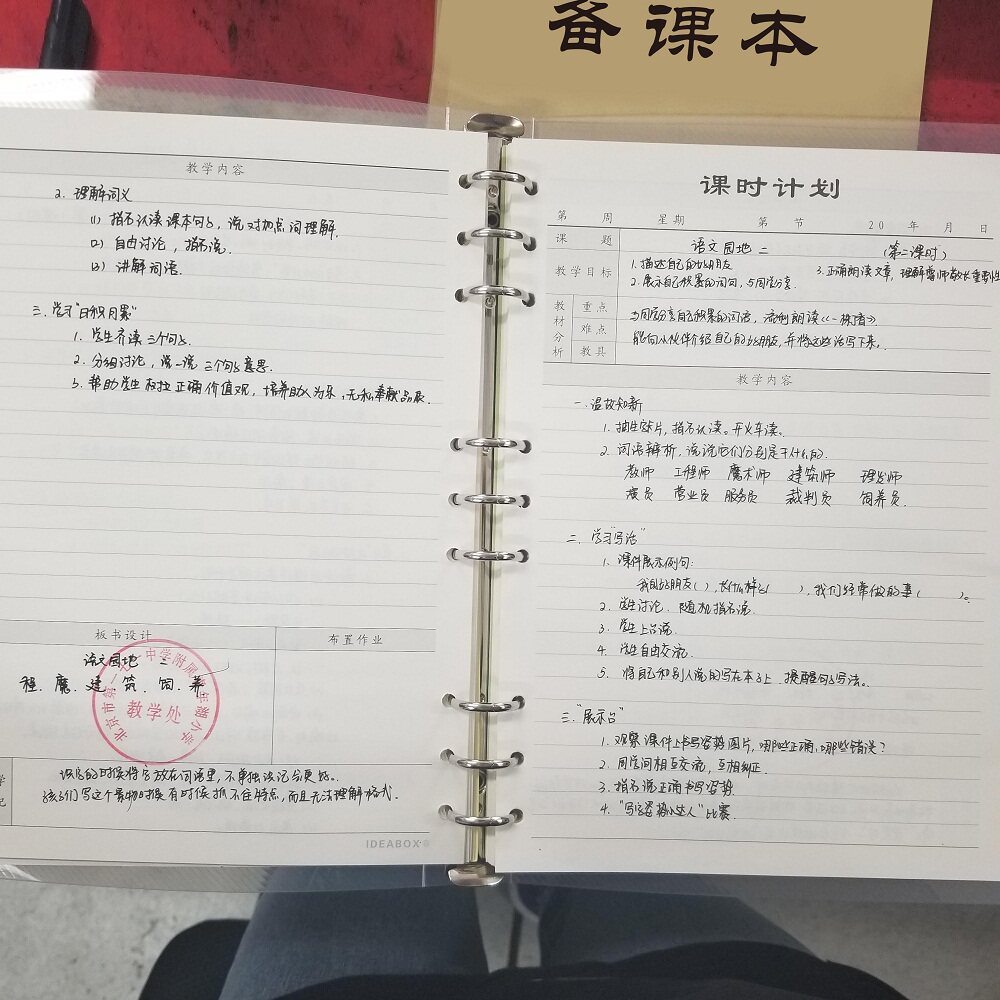 备课本
教学内容
2. 理解词义
(1) 指名认读课本句子，说对加点词理解.
(2) 自由讨论，指名说.
(3) 讲解词语.
三. 学习"日积月累"
1. 学生齐读三个句子.
2. 分组讨论，说一说三个句子意思.
3. 帮助学生树立正确价值观，培养助人为乐、无私奉献品质.
板书设计
布置作业
语文园地 二
程. 魔. 建. 筑. 饲. 养
北京市第一七一中学附属青年湖小学
教学处
识字的时候将字放在词语里，不单独识记会更好。
孩子们写这个事物时候有时候抓不住特点，而且无法理解格式.
学
记
IDEABOX®
课时计划
第 周 星期 第 节 20 年 月 日
课 题 语文园地二 (第二课时)
教学目标 1. 描述自己的好朋友 3. 正确朗读文章，理解尊师敬长重要性
2. 展示自己积累的词句，与同学分享.
教材分析
重点 与同学分享自己积累的词语，流利朗读《一株青》
难点 能向小伙伴介绍自己的好朋友，并将这些话写下来.
教具
教学内容
一. 温故知新
1. 抽生字片，指名认读。开火车读。
2. 词语辨析，说说它们分别是干什么的.
教师 工程师 魔术师 建筑师 理发师
演员 营业员 服务员 裁判员 饲养员.
二. 学习"写话"
1. 课件展示例句:
我的好朋友( ), 长什么样子( ), 我们经常做的事( )。
2. 学生讨论. 随机指名说.
3. 学生上台说.
4. 学生自由交流.
5. 将自己和别人说的写在本子上. 提醒句子写法。
三. "展示台"
1. 观察课件上书写姿势图片，哪些正确，哪些错误?
2. 同学间相互交流，互相纠正.
3. 指名说正确书写姿势
4. "写字姿势小达人"比赛.